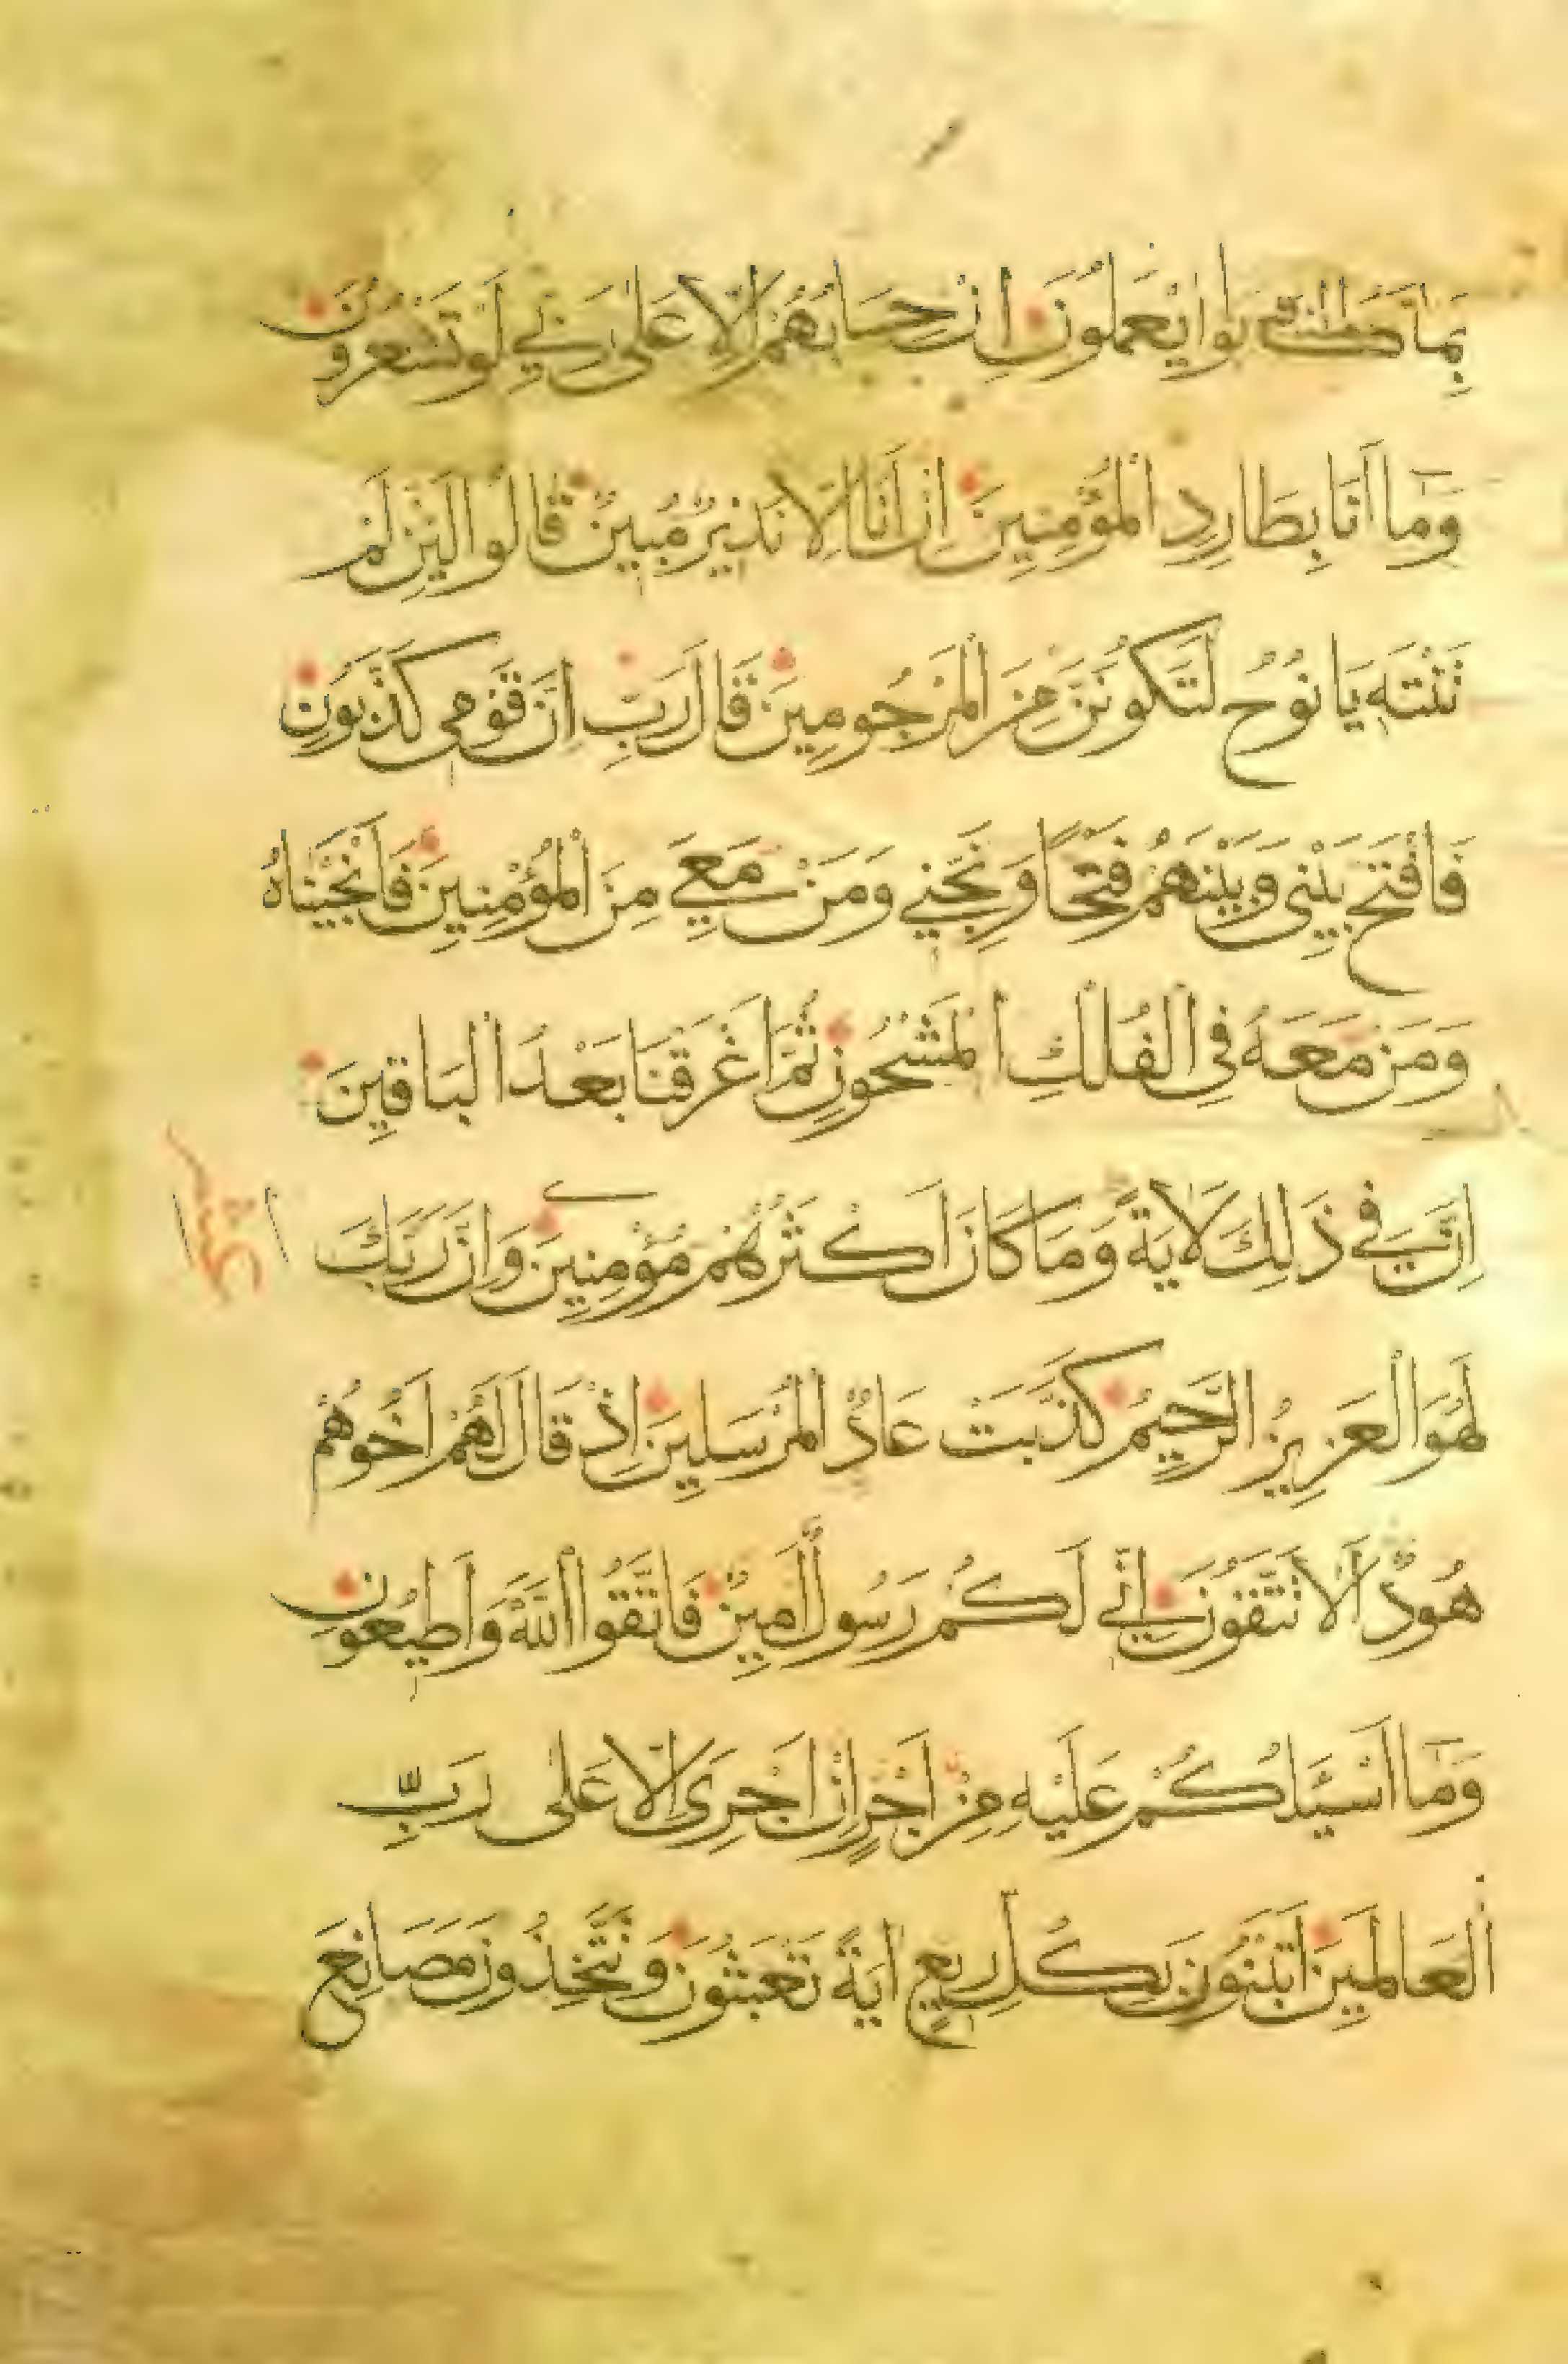 بِمَا كَانُوا يَعْمَلُونَ اِنْ حِسَابُهُمْ اِلَّا عَلٰى رَبِّي لَوْ تَشْعُرُونَ
وَمَٓا اَنَا بِطَارِدِ الْمُؤْمِنِينَ اِنْ اَنَا اِلَّا نَذِيرٌ مُبِينٌ قَالُوا لَئِنْ لَمْ
تَنْتَهِ يَا نُوحُ لَتَكُونَنَّ مِنَ الْمَرْجُومِينَ قَالَ رَبِّ اِنَّ قَوْمِى كَذَّبُونِ
فَافْتَحْ بَيْنِى وَبَيْنَهُمْ فَتْحًا وَنَجِّنِي وَمَنْ مَعِيَ مِنَ الْمُؤْمِنِينَ فَاَنْجَيْنَاهُ
وَمَنْ مَعَهُ فِي الْفُلْكِ الْمَشْحُونِ ثُمَّ اَغْرَقْنَا بَعْدُ الْبَاقِينَ
اِنَّ فِي ذٰلِكَ لَاٰيَةً وَمَا كَانَ اَكْثَرُهُمْ مُؤْمِنِينَ وَاِنَّ رَبَّكَ
لَهُوَ الْعَزِيزُ الرَّحِيمُ كَذَّبَتْ عَادٌ الْمُرْسَلِينَ اِذْ قَالَ لَهُمْ اَخُوهُمْ
هُودٌ اَلَا تَتَّقُونَ اِنِّي لَكُمْ رَسُولٌ اَمِينٌ فَاتَّقُوا اللّٰهَ وَاَطِيعُونِ
وَمَٓا اَسْـَٔلُكُمْ عَلَيْهِ مِنْ اَجْرٍ اِنْ اَجْرِىَ اِلَّا عَلٰى رَبِّ
الْعَالَمِينَ اَتَبْنُونَ بِكُلِّ رِيعٍ اٰيَةً تَعْبَثُونَ وَتَتَّخِذُونَ مَصَانِعَ